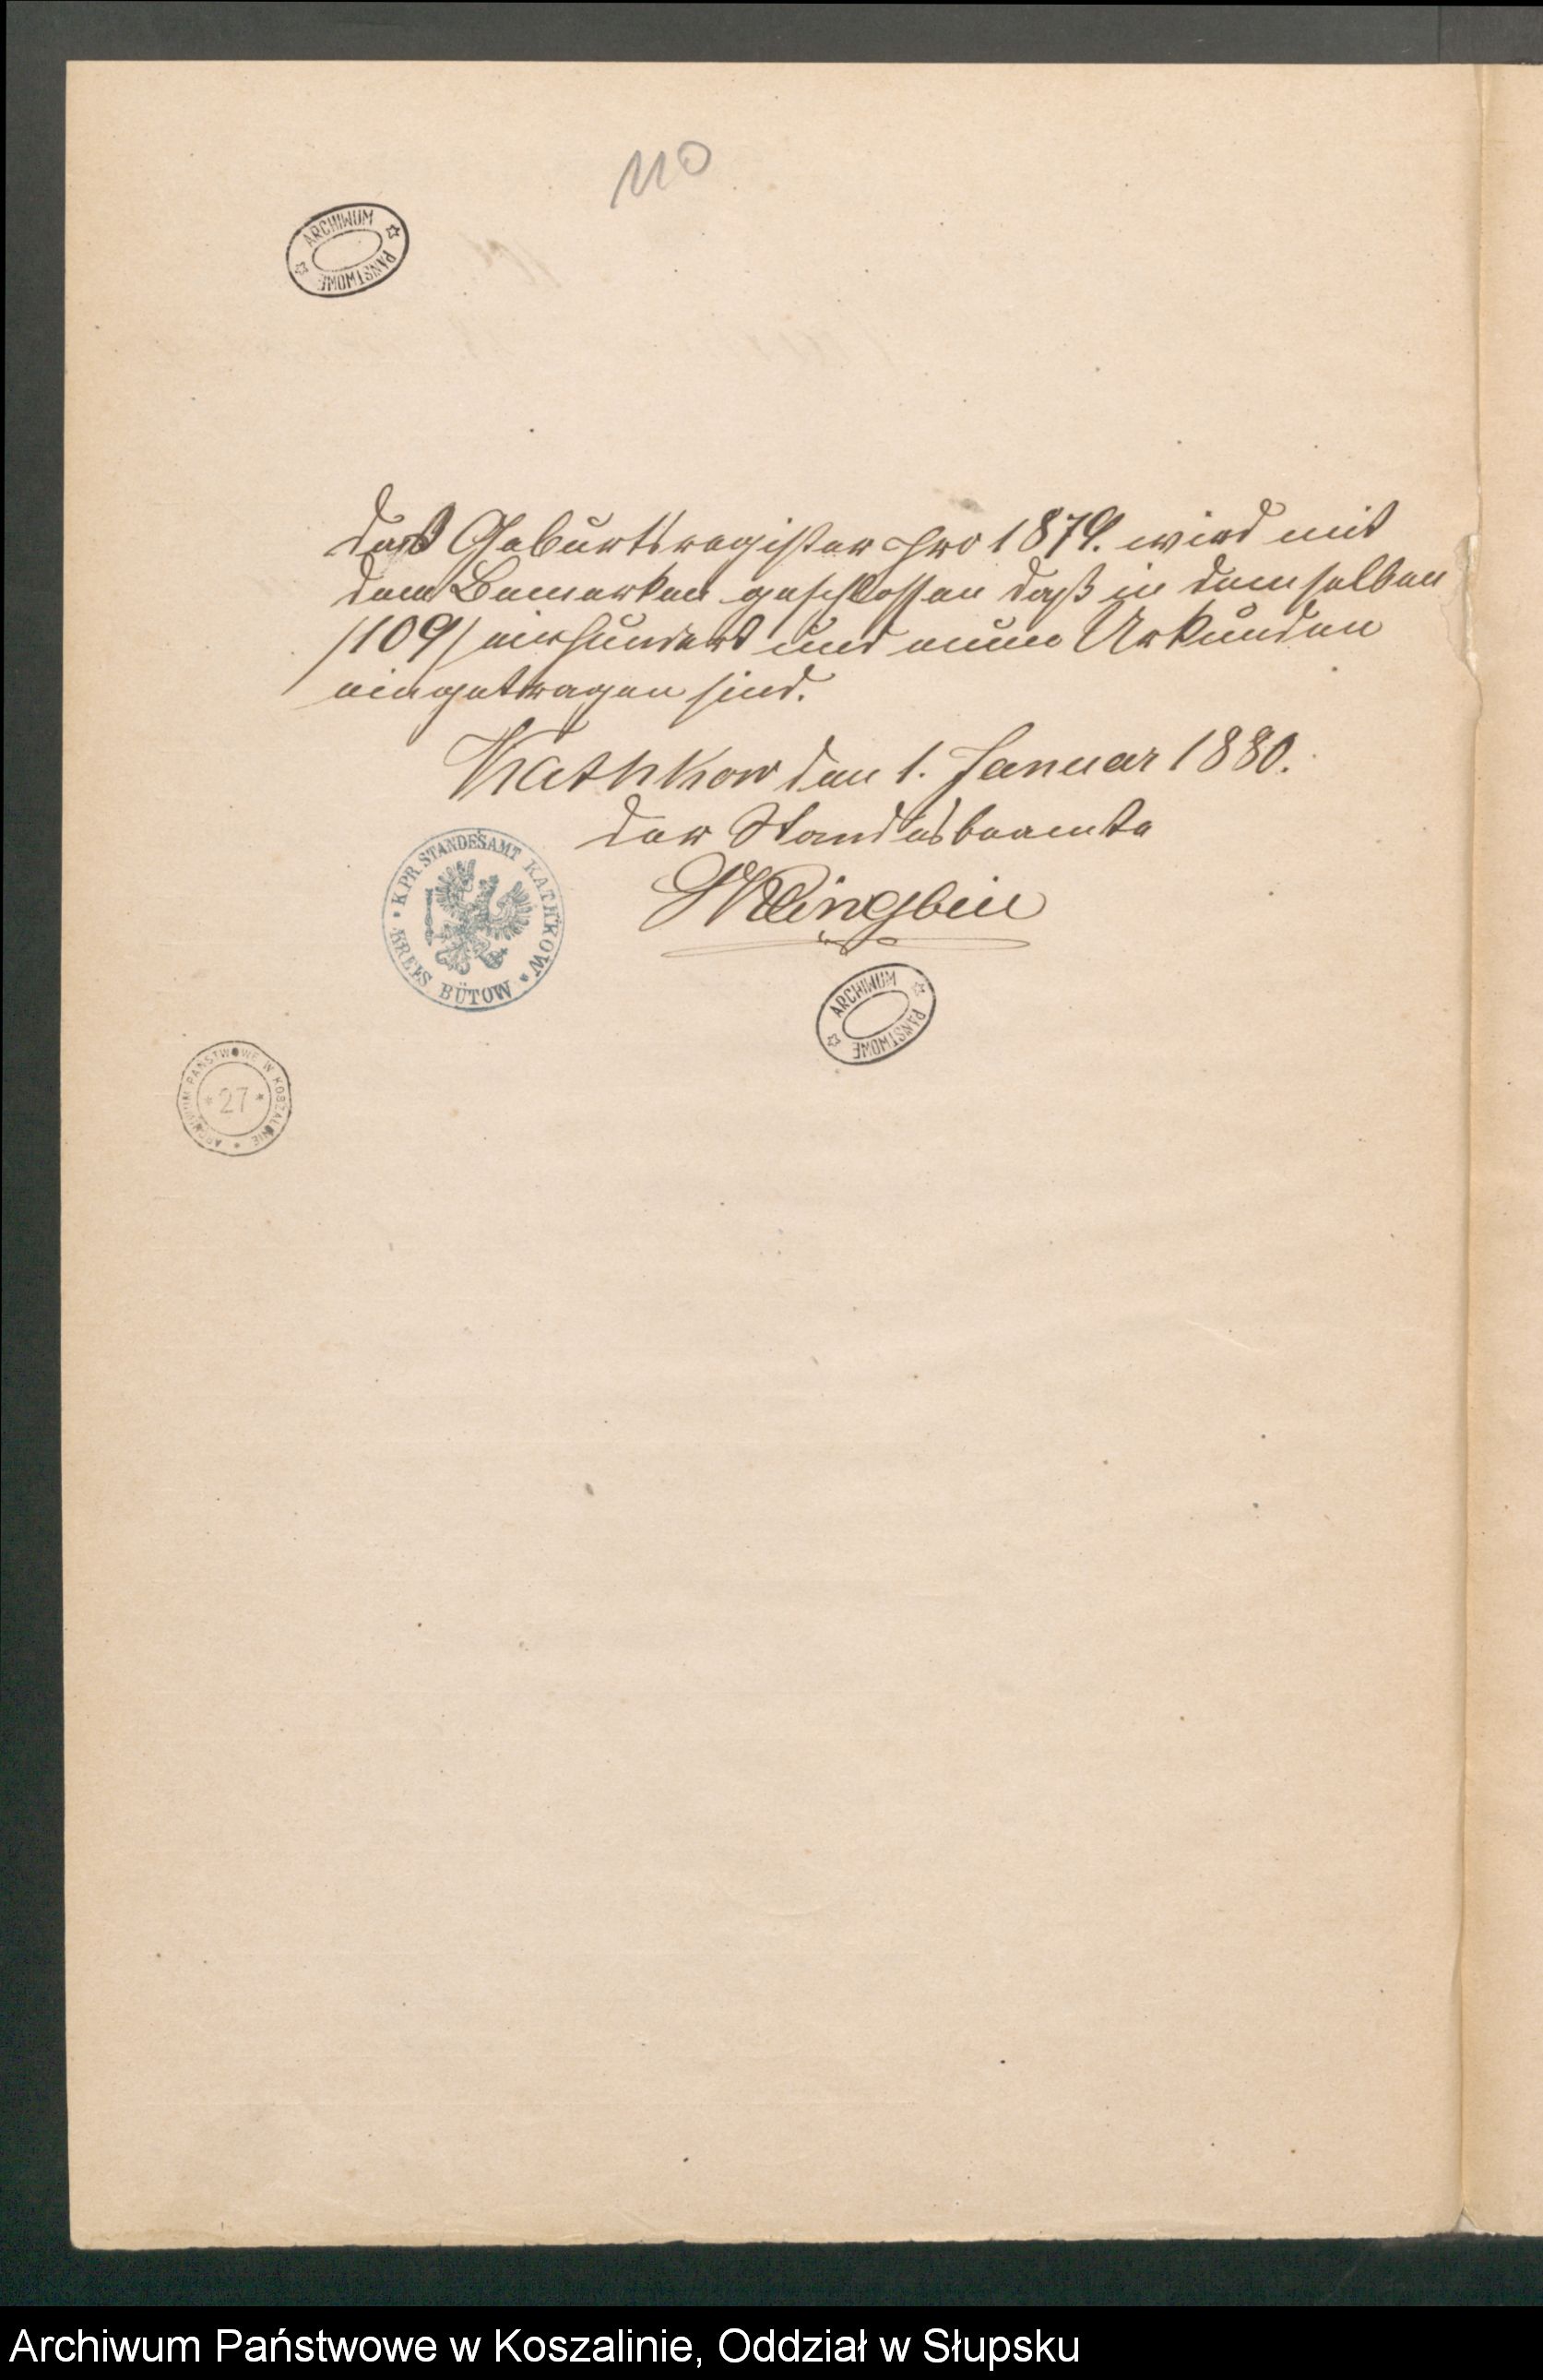 110
ARCHIWUM PAŃSTWOWE
Das Geburtsregister pro 1879. wird mit
dem Bemerken geschlossen daß in demselben
/109/ einhundert und neun Urkunden
eingetragen sind.
Kathkow den 1. Januar 1880.
Der Standesbeamte
K.PR. STANDESAMT KATHKOW
KREIS BÜTOW
ARCHIWUM PAŃSTWOWE
ARCHIWUM PAŃSTWOWE W KOSZALINIE
* 27 *
Archiwum Państwowe w Koszalinie, Oddział w Słupsku